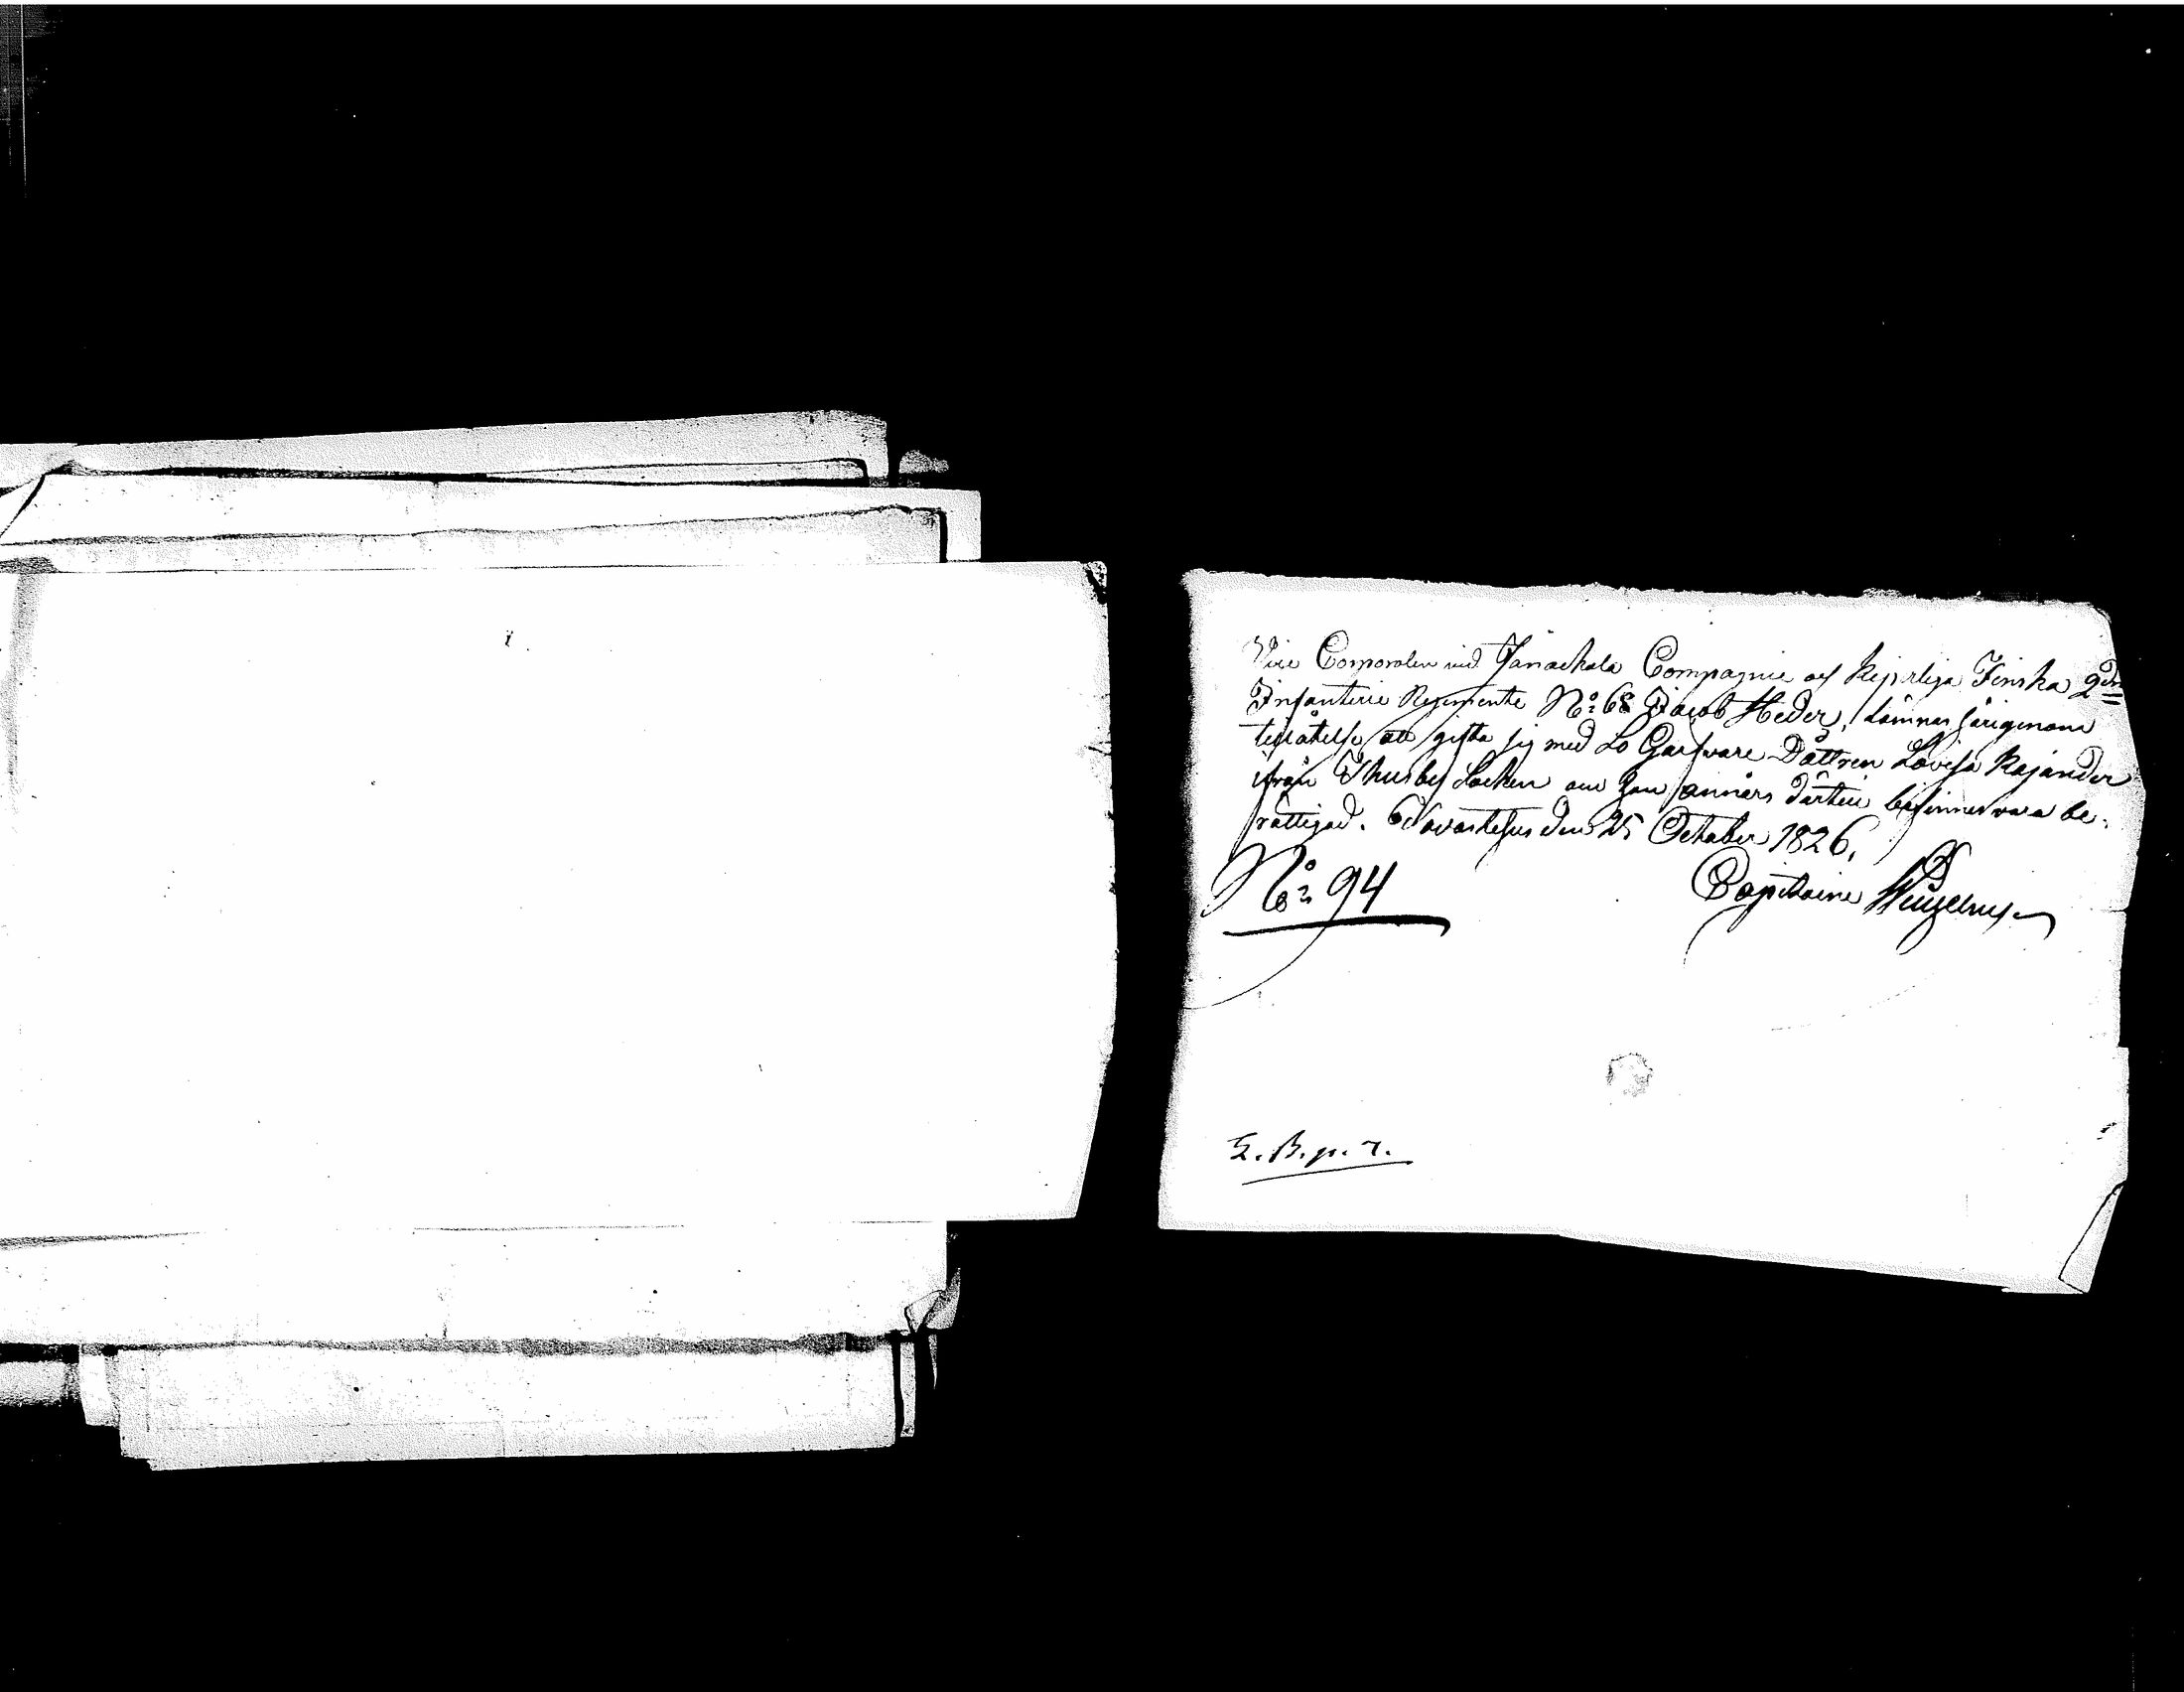 Vice Corporalen vid Janackala Compagnie af Kejserliga Finska 2dra
Infanterie Regimente No: 68 Jacob Heder, lämnas härigenom
tillåtelse att gifta sig med Lo Garfvare Dottren Lovisa Kajander
ifrån Thusby Socken om han annars dertill befinnes vara be-
rättigad. Tavastehus den 25 October 1826.
No: 94 Capitaine
L.B.p.7.